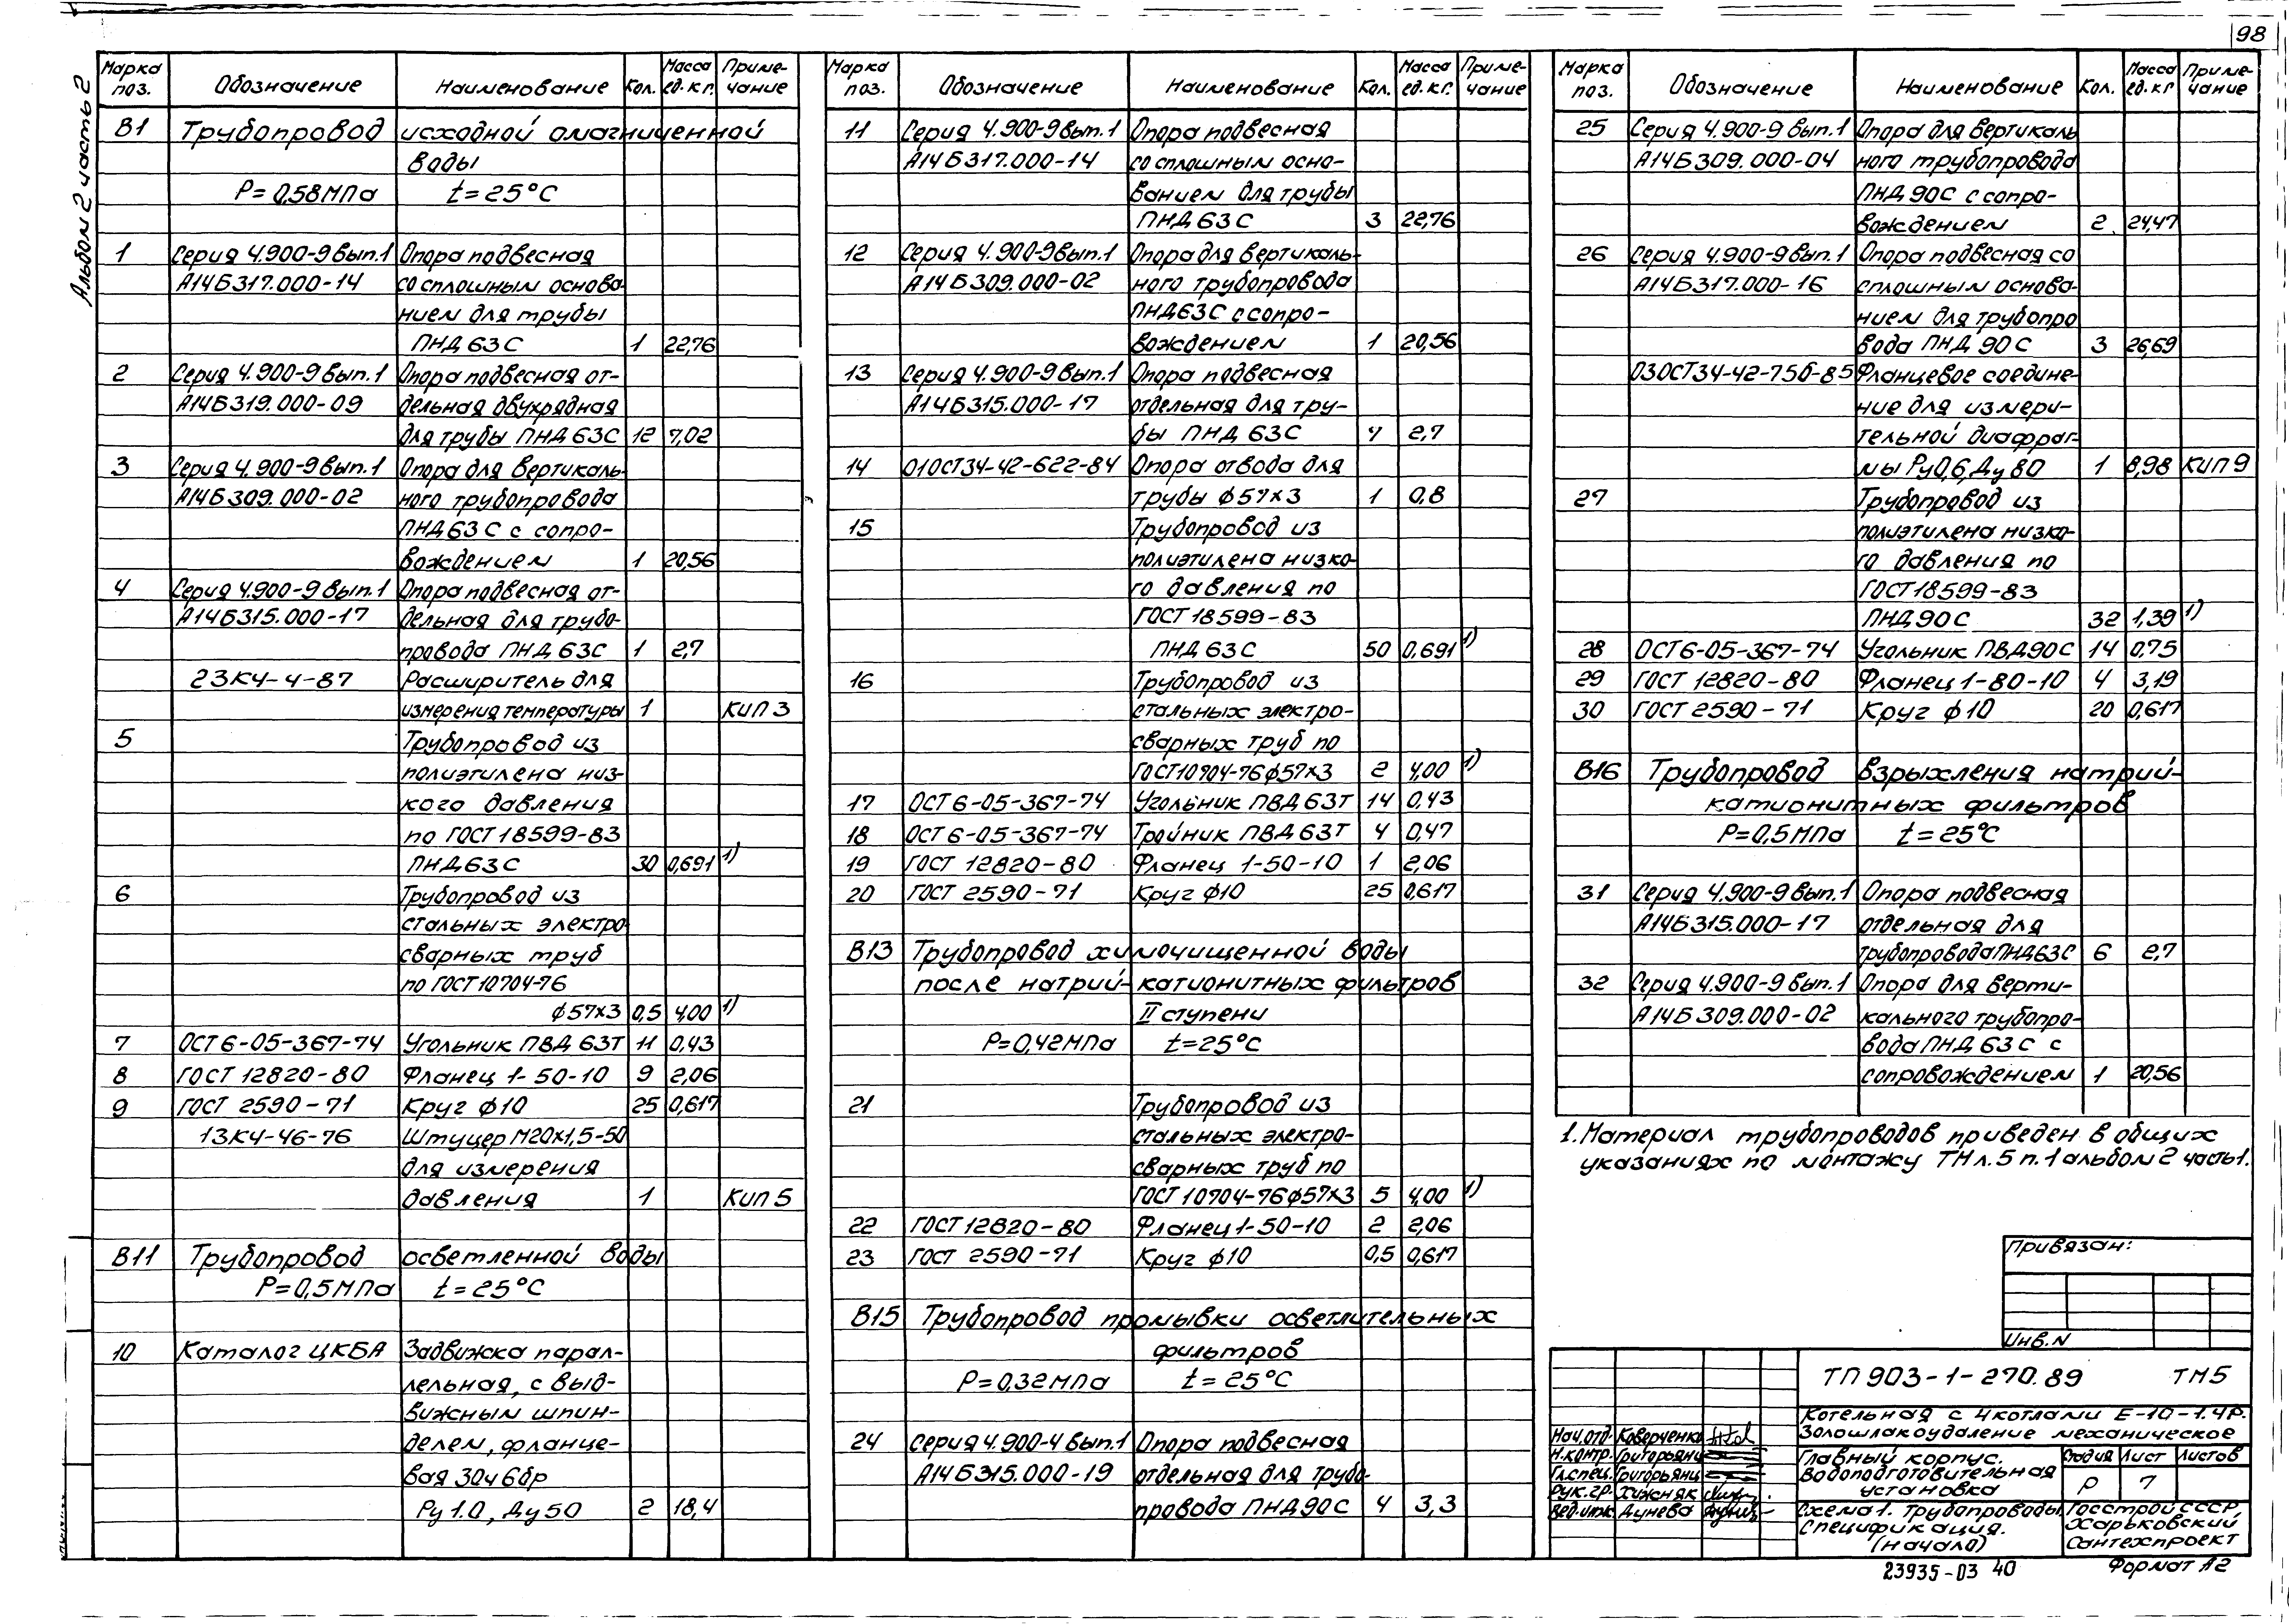 98
Альбом 2 часть 2
Марка поз. Обозначение Наименование Кол. Масса ед. кг. Примечание
В1 Трубопровод исходной омагниченной
воды
Р=0,58МПа t=25°С
1 Серия 4.900-9 вып.1 Опора подвесная
А14Б317.000-14 со сплошным основа-
нием для трубы
ПНД 63С 1 22,76
2 Серия 4.900-9 вып.1 Опора подвесная от-
А14Б319.000-09 дельная двухрядная
для трубы ПНД 63С 12 7,02
3 Серия 4.900-9 вып.1 Опора для вертикаль-
А14Б309.000-02 ного трубопровода
ПНД 63С с сопро-
вождением 1 20,56
4 Серия 4.900-9 вып.1 Опора подвесная от-
А14Б315.000-17 дельная для трубо-
провода ПНД 63С 1 2,7
23К4-4-87 Расширитель для
измерения температуры 1 КИП 3
5 Трубопровод из
полиэтилена низ-
кого давления
по ГОСТ 18599-83
ПНД 63С 30 0,691 1)
6 Трубопровод из
стальных электро
сварных труб
по ГОСТ 10704-76
ф57х3 0,5 4,00 1)
7 ОСТ 6-05-367-74 Угольник ПВД 63Т 11 0,43
8 ГОСТ 12820-80 Фланец 1-50-10 9 2,06
9 ГОСТ 2590-71 Круг ф10 25 0,617
13К4-46-76 Штуцер М20х1,5-50
для измерения
давления 1 КИП 5
В11 Трубопровод осветленной воды
Р=0,5МПа t=25°С
10 Каталог ЦКБА Задвижка парал-
лельная, с выд-
вижным шпин-
делем, фланце-
вая 30ч6бр
Ру 1.0, Ду 50 2 18,4
Марка поз. Обозначение Наименование Кол. Масса ед. кг. Примечание
11 Серия 4.900-9 вып.1 Опора подвесная
А14Б317.000-14 со сплошным осно-
ванием для трубы
ПНД 63С 3 22,76
12 Серия 4.900-9 вып.1 Опора для вертикаль-
А14Б309.000-02 ного трубопровода
ПНД 63С с сопро-
вождением 1 20,56
13 Серия 4.900-9 вып.1 Опора подвесная
А14Б315.000-17 отдельная для тру-
бы ПНД 63С 4 2,7
14 01ОСТ34-42-622-84 Опора отвода для
трубы ф57х3 1 0,8
15 Трубопровод из
полиэтилена низко-
го давления по
ГОСТ 18599-83
ПНД 63С 50 0,691 1)
16 Трубопровод из
стальных электро-
сварных труб по
ГОСТ 10704-76 ф57х3 2 4,00 1)
17 ОСТ 6-05-367-74 Угольник ПВД 63Т 14 0,43
18 ОСТ 6-05-367-74 Тройник ПВД 63Т 4 0,47
19 ГОСТ 12820-80 Фланец 1-50-10 1 2,06
20 ГОСТ 2590-71 Круг ф10 25 0,617
В13 Трубопровод химочищенной воды
после натрий-катионитных фильтров
II ступени
Р=0,42МПа t=25°С
21 Трубопровод из
стальных электро-
сварных труб по
ГОСТ 10704-76 ф57х3 5 4,00 1)
22 ГОСТ 12820-80 Фланец 1-50-10 2 2,06
23 ГОСТ 2590-71 Круг ф10 0,5 0,617
В15 Трубопровод промывки осветлительных
фильтров
Р=0,32МПа t=25°С
24 Серия 4.900-4 вып.1 Опора подвесная
А14Б315.000-19 отдельная для трубо-
провода ПНД 90С 4 3,3
Марка поз. Обозначение Наименование Кол. Масса ед. кг Примечание
25 Серия 4.900-9 вып.1 Опора для вертикаль
А14Б309.000-04 ного трубопровода
ПНД 90С с сопро-
вождением 2 24,47
26 Серия 4.900-9 вып.1 Опора подвесная со
А14Б317.000-16 сплошным основа-
нием для трубопро
вода ПНД 90С 3 26,69
03ОСТ34-42-756-85 Фланцевое соедине-
ние для измери-
тельной диафраг-
мы Ру0,6, Ду 80 1 8,98 КИП 9
27 Трубопровод из
полиэтилена низко-
го давления по
ГОСТ 18599-83
ПНД 90С 32 1,39 1)
28 ОСТ 6-05-367-74 Угольник ПВД 90С 14 0,75
29 ГОСТ 12820-80 Фланец 1-80-10 4 3,19
30 ГОСТ 2590-71 Круг ф10 20 0,617
В16 Трубопровод взрыхления натрий-
катионитных фильтров
Р=0,5МПа t=25°С
31 Серия 4.900-9 вып.1 Опора подвесная
А14Б315.000-17 отдельная для
трубопровода ПНД 63С 6 2,7
32 Серия 4.900-9 вып.1 Опора для верти-
А14Б309.000-02 кального трубопро-
вода ПНД 63С с
сопровождением 1 20,56
1. Материал трубопроводов приведен в общих
указаниях по монтажу ТМ л.5 п.1 альбом 2 часть 1.
Привязан:
Инв.N
ТП 903-1-270.89 ТМ5
Котельная с 4 котлами Е-10-1.4Р.
Золошлакоудаление механическое
Нач.отд. Коверченко
Н.контр. Григорьянц
Гл.спец. Григорьянц
Рук.гр. Хижняк
Вед.инж. Дунева
Главный корпус.
Водоподготовительная
установка
Стадия Лист Листов
Р 7
Схема 1. Трубопроводы
Спецификация.
(начало)
Госстрой СССР,
Харьковский
Сантехпроект
23935-03 40
Формат А2